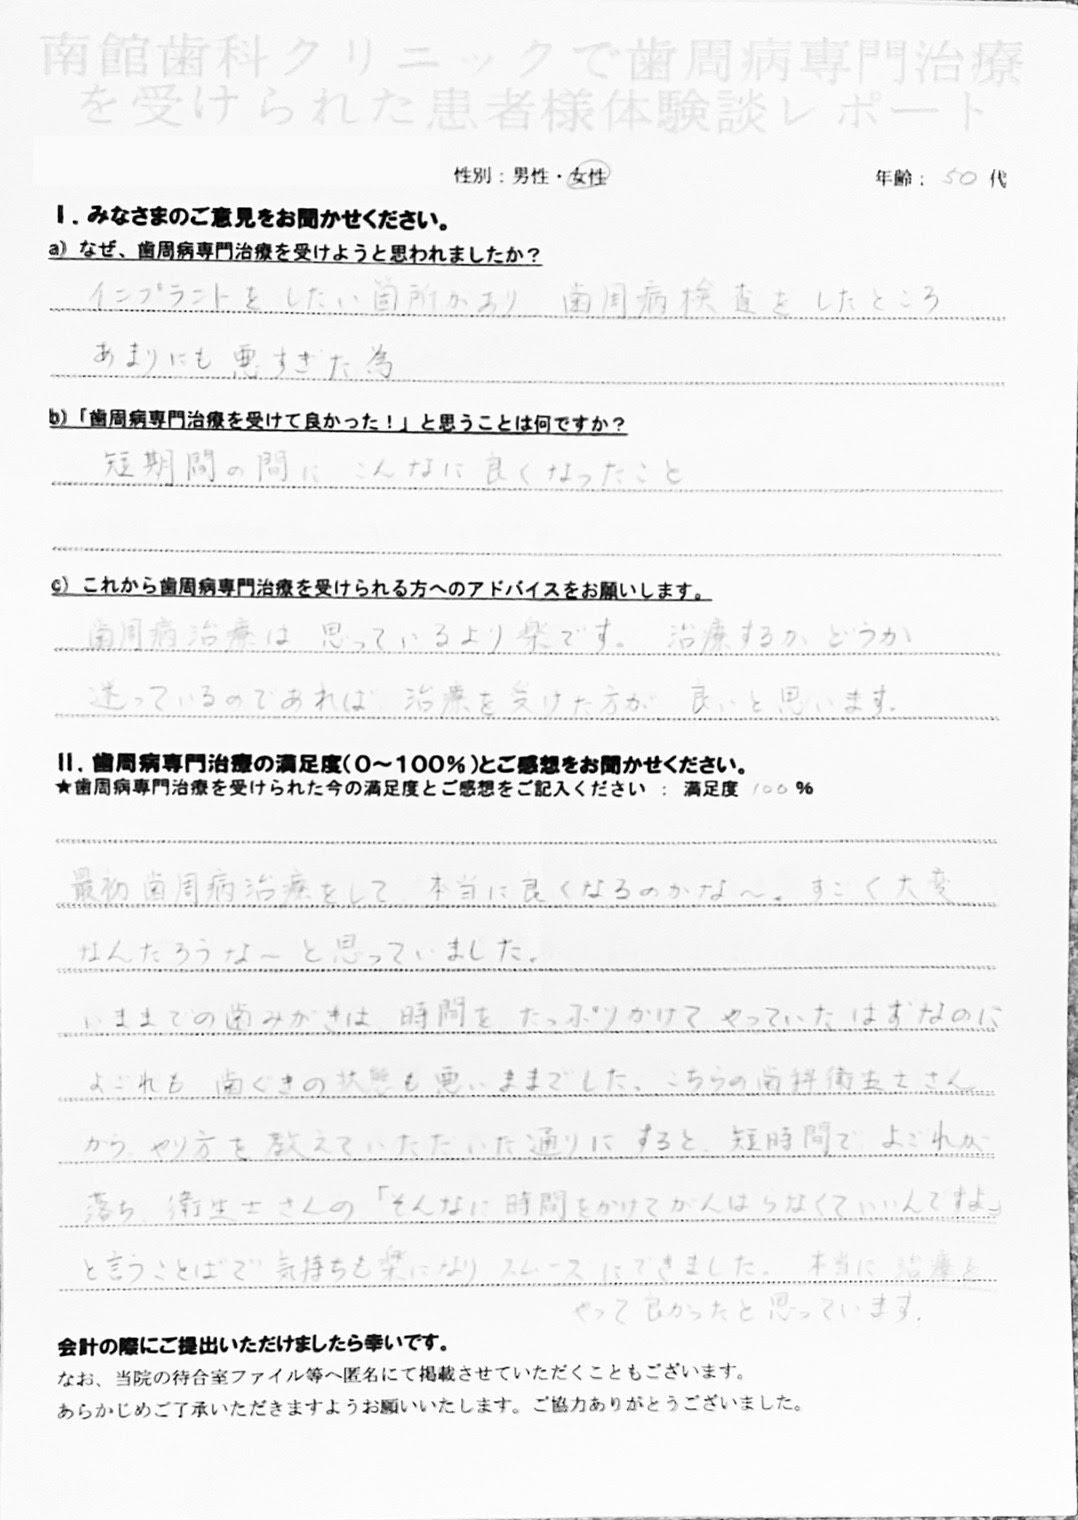 南館歯科クリニックで歯周病専門治療
を受けられた患者様体験談レポート
性別：男性・女性 年齢： 50 代
I. みなさまのご意見をお聞かせください。
a) なぜ、歯周病専門治療を受けようと思われましたか？
インプラントをしたい箇所があり 歯周病検査をしたところ
あまりにも悪すぎた為
b)「歯周病専門治療を受けて良かった！」と思うことは何ですか？
短期間の間に こんなに良くなったこと
c) これから歯周病専門治療を受けられる方へのアドバイスをお願いします。
歯周病治療は 思っているより楽です。 治療するか どうか
迷っているのであれば 治療を受けた方が 良いと思います。
II. 歯周病専門治療の満足度（0～100%）とご感想をお聞かせください。
★歯周病専門治療を受けられた今の満足度とご感想をご記入ください ： 満足度 100 %
最初歯周病治療をして 本当に良くなるのかな～。すごく大変
なんだろうな～と思っていました。
いままでの歯みがきは 時間を たっぷりかけて やっていたはずなのに
よごれも 歯ぐきの状態も悪いままでした。こちらの歯科衛生士さん
から、やり方を 教えていただいた通りに すると、短時間で よごれが
落ち、衛生士さんの「そんなに時間をかけてがんばらなくていいんですよ」
と言うことばで 気持ちも楽になり スムーズにできました。 本当に 治療を
やって 良かったと思っています。
会計の際にご提出いただけましたら幸いです。
なお、当院の待合室ファイル等へ匿名にて掲載させていただくこともございます。
あらかじめご了承いただきますようお願いいたします。ご協力ありがとうございました。